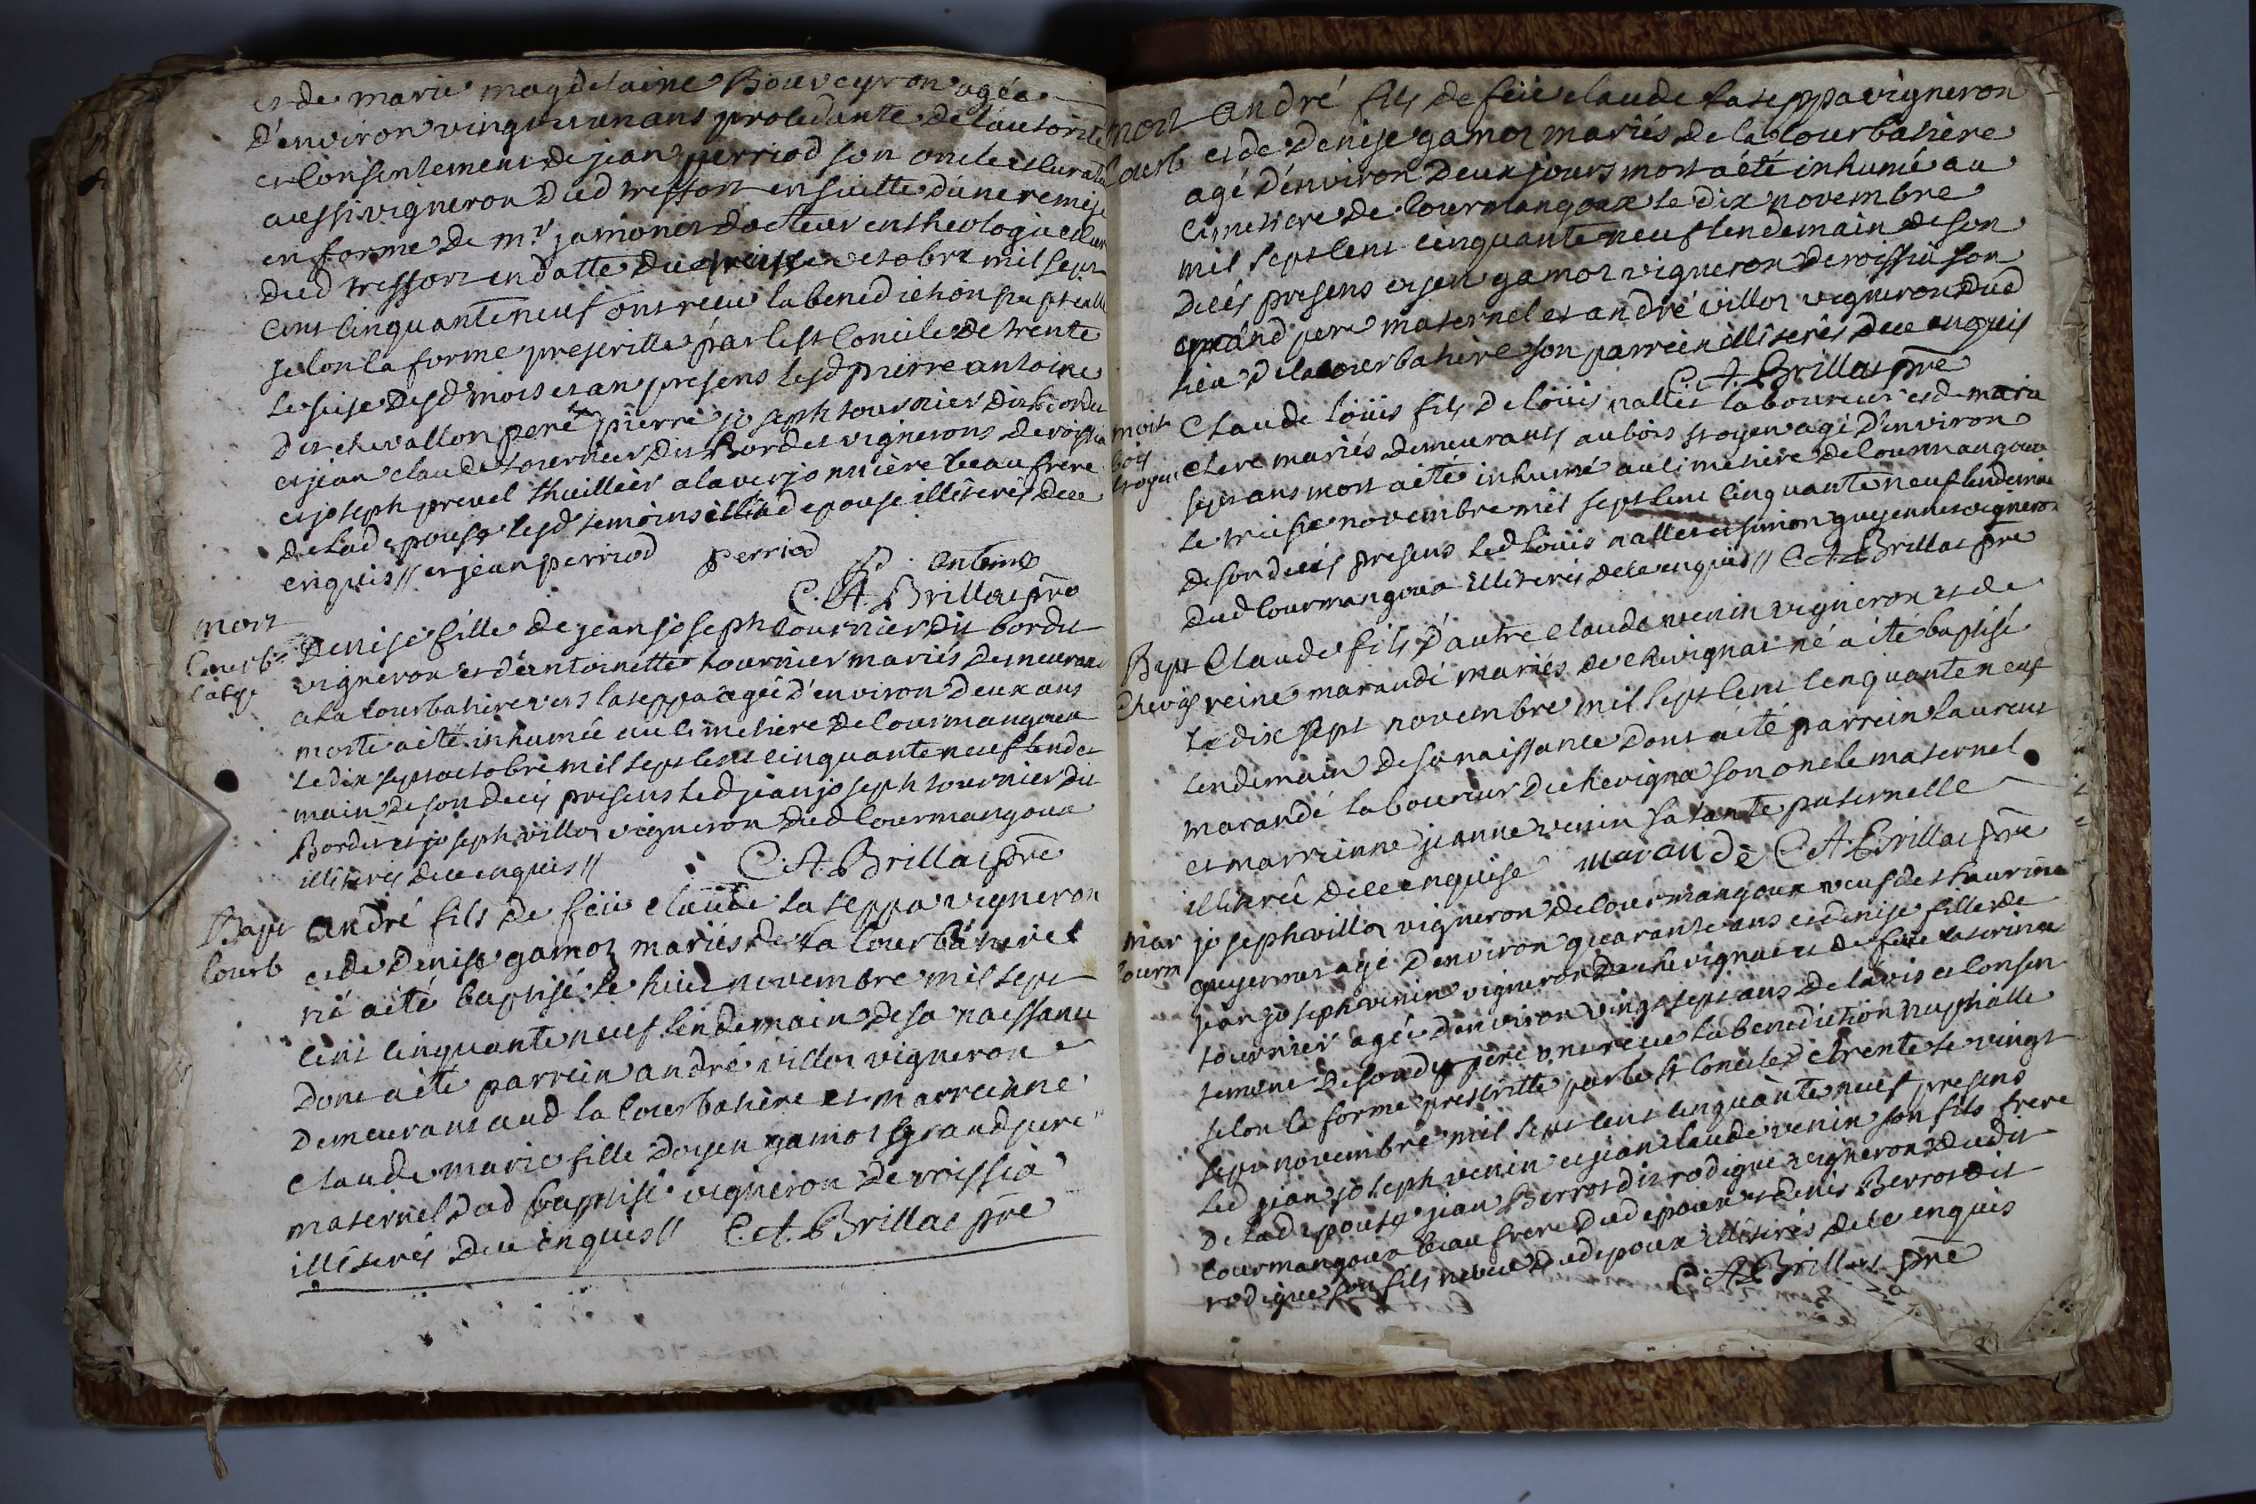 et de marie magdelaine Bouveyron agée
d'environ vingt et un ans procedante de l'autorité
et consentement de jean perriod son oncle et curateur
aussi vigneron dud tressort en suitte d'une remise
en forme de mr. jamonet docteur en theologie et curé
dud tressort en datte du octobre mil sept
cent cinquante neuf ont receu la benediction nuptialle
selon la forme prescritte par le st Concile de trente
le seise desd mois et an presens lesd pierre antoine
dit chevallon pere pierre joseph tournier dit bordet
et jean claude tournier dit Bordet vignerons de roissia
et joseph prevel thuillier a la verjonniere beau frere
de lad epouse lesd temoins et lad epouse illiterés de ce
enquis // et jean perriod perriod
antoine
C. A. Brillat pre
mort
Courb
Denise fille de jean joseph tournier dit bordet
vigneron et d'antoinette tournier mariés demeurans
a la courbatiere vers la seppa agée d'environ deux ans
morte a été inhumée au cimetiere de courmangoux
le dix sept octobre mil sept cent cinquante neuf lende
main de son deces presens led jean joseph tournier dit
Bordet et joseph villot vigneron dud courmangoux
illiterés de ce enquis // C. A. Brillat pre
Bapt
Courb
andré fils de feu claude la seppa vigneron
et de Denise gamot mariés de la courbatiere
né a été baptisé le huit novembre mil sept
cent cinquante neuf lendemain de sa naissance
dont a été parrein andré villot vigneron
demeurant aud la courbatière et marreinne
claude marie fille d'oyen gamot grand pere
maternel dud baptisé vigneron de roissia
illiterés de ce enquis // C. A. Brillat pre
mort
Courb
andré fils de feu claude la seppa vigneron
et de Denise gamot mariés de la courbatière
agé d'environ deux jours mort a été inhumé au
cimetiere de courmangoux le dix novembre
mil sept cent cinquante neuf lendemain de son
décés presens oyen gamot vigneron de roissia son
grand pere maternel et andré villot vigneron dud
lieu de la courbatière son parrein illiterés de ce enquis
C. A. Brillat pre
mort
bois
Claude loüis fils de loüis nallet laboureur et d marie
clerc mariés demeurants au bois st oyen agé d'environ
sept ans mort a été inhumé au cimetiere de courmangoux
le treise novembre mil sept cent cinquante neuf lendemain
de son decés presens led loüis nallet et simon guyennet vigneron
dud courmangoux illiterés de ce enquis // C. A. Brillat pre
Bapt
Chevig
Claude fils d'autre claude venin vigneron et de
reine marandé mariés de chevignat né a été baptisé
le dix sept novembre mil sept cent cinquante neuf
lendemain de sa naissance dont a été parrein laurent
marandé laboureur de chevigna son oncle maternel
et marreinne jeanne venin sa tante paternelle
illiterée de ce enquise marandé C. A. Brillat pre
mar
Courm
joseph villot vigneron de courmangoux veuf de thaurine
guyennet agé d'environ quarante ans et denise fille de
jean joseph venin vigneron de chevignat et de feue caterine
tournier agée d'environ vingt sept ans de l'avis et consen
tement de sond père ont receu la benediction nupthialle
selon la forme prescritte par le st Concile de trente le vingt
sept novembre mil sept cent cinquante neuf presens
led jean joseph venin et jean claude venin son fils frere
de lad epouse jean Berrot dit rodigue vigneron dud
courmangoux beau frere dud epoux et denis Berrot dit
rodigue son fils neveu dud epoux illiterés de ce enquis
C. A. Brillat pre